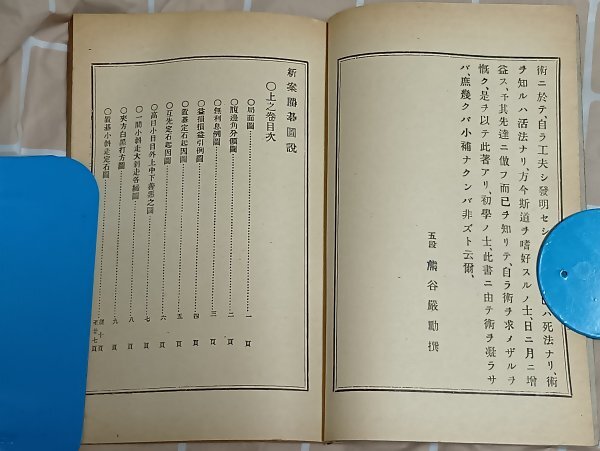 術ニ於テ、自ラ工夫シ發明セシ
ハ死法ナリ、術
ヲ知ルハ活法ナリ、方今斯道ヲ嗜好スルノ士、日ニ月ニ增
益ス、千其先達ニ倣フ而已ヲ知リテ、自ラ術ヲ求メザルヲ
慨ク、是ヲ以テ此著アリ、初學ノ士、此書ニ由テ術ヲ凝ラサ
バ、庶幾クバ小補ナクンバ非ズト云爾、
五段 熊谷嚴勛撰
新案圍碁圖說
○上之卷目次
○局面圖 一頁
○腹邊角分價圖 二頁
○無利息例圖 三頁
○益損損益引例圖 四頁
○置碁定石起因圖 五頁
○互先定石起因圖 六頁
○高目小目目外上中下 之圖 七頁
○一間小斜走大斜走各締圖 八頁
○雙方白黑打方圖 九頁
○置碁小斜走定石圖 從十頁至廿七頁